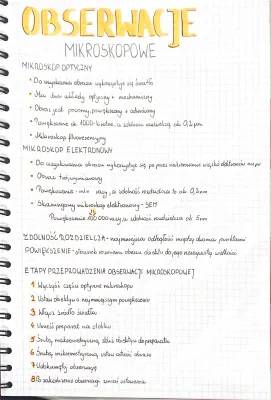 OBSERWACJE
MIKROSKOPOWE
MIKROSKOP OPTYCZNY
• Do uzyskania obrazu wykorzystuje się światło
• Ma dwa układy optyczny i mechaniczny
• Obraz jest pozorny, powiększony i odwrócony
• Powiększenie do 1000-krotne, a zdolność rozdzielcza ok 0,2 µm
• Mikroskop fluorescencyjny
MIKROSKOP ELEKTRONOWY
• Do uzyskiwania obrazu wykorzystuje się
• Obraz trójwymiarowy
• Powiększenie mln razy, a zdolność rozdzielcza to ok 0,2 nm
• Skaningowy mikroskop elektronowy - SEM
Powiększenie 100 000 razy, a zdolność rozdzielcza ok 5nm
ZDOLNOŚĆ ROZDZIELCZA - najmniejsza odległość między dwoma punktami
POWIĘKSZENIE - stosunek rozmiaru obrazu obiektu do jego rzeczywistej wielkości
ETAPY PRZEPROWADZENIA OBSERWACJI MIKROSKOPOWEJ
1 Wyczyść części optyczne mikroskopu
2 Ustaw obiektyw o najmniejszym powiększeniu
3 Włącz źródło światła
4 Umieść preparat na stoliku
5 Śrubą makrometryczną zbliż obiektyw do preparatu
6 Śrubą mikrometryczną ustaw ostrość obrazu
7 Udokumentuj obserwację
8 Po zakończeniu obserwacji